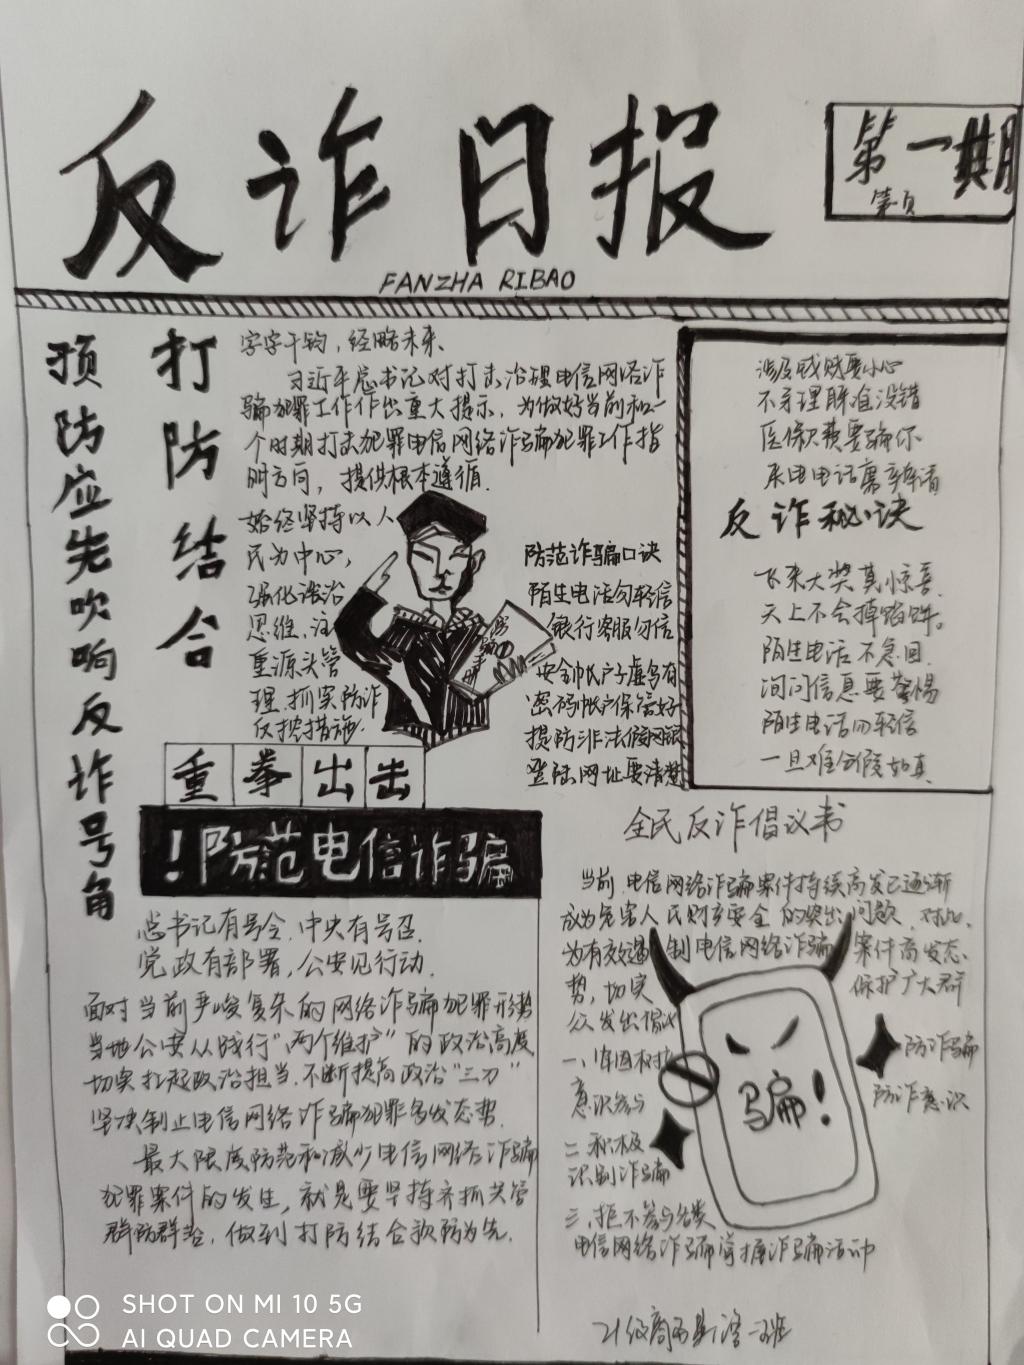 反诈日报
FANZHA RIBAO
第一期
预防应先吹响反诈号角
打防结合
字字千钧，经略未来
习近平总书记对打击治理电信网络诈
骗犯罪工作作出重大指示，为做好当前和一
个时期打击犯罪电信网络诈骗犯罪工作指
明方向，提供根本遵循．
始终坚持以人
民为中心，
强化法治
思维，注
重源头管
理．抓实防诈
反扰措施．
防范诈骗口诀
陌生电话勿轻信
银行客服勿信
安全帐户子虚乌有
密码帐户保管好
提防非法假网银
登陆网址要清楚
涉及钱财要小心
不予理睬准没错
医保欠费要骗你
来电电话需弃清
反诈秘诀
飞来大奖莫惊喜．
天上不会掉馅饼。
陌生电话不急回．
询问信息要警惕
陌生电话勿轻信
一旦难分假如真
重拳出击
！防范电信诈骗
总书记有号令．中央有号召．
党政有部署，公安见行动．
面对当前严峻复杂的网络诈骗犯罪形势
当地公安从践行“两个维护”的政治高度
切实扛起政治担当．不断提高政治“三力”
坚决制止电信网络诈骗犯罪多发态势．
最大限度防范和减少电信网络诈骗
犯罪案件的发生，就是要坚持齐抓共管
群防群治．做到打防结合预防为先．
全民反诈倡议书
当前．电信网络诈骗案件持续高发已逐渐
成为危害人民财产安全的突出问题．对此．
为有效遏制电信网络诈骗案件高发态
势，切实保护广大群
众发出倡议
一、
意识参与
二积极
识别诈骗
三．拒不参与各类
电信网络诈骗 诈骗活动
骗！
防诈骗
防诈意识